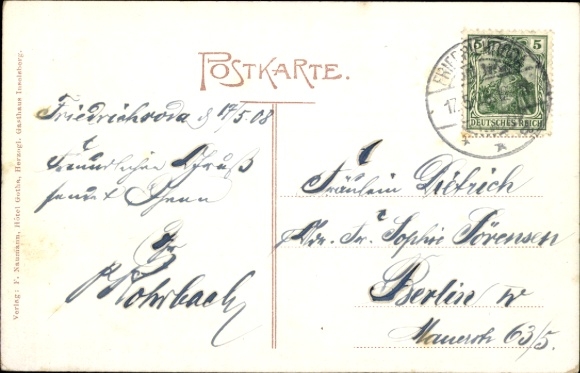 POSTKARTE.
FRIEDRICHRODA
5 5
DEUTSCHES REICH
Friedrichroda d 17/5.08
Freundlichen Gruß
sendet Ihnen
Rohrbach
Fräulein Dietrich
Adr. Fr. Sophie Sörensen
Berlin W
Mauerstr 63/5.
Verlag: F. Naumann, Hôtel Gotha, Herzogl. Gasthaus Inselsberg.